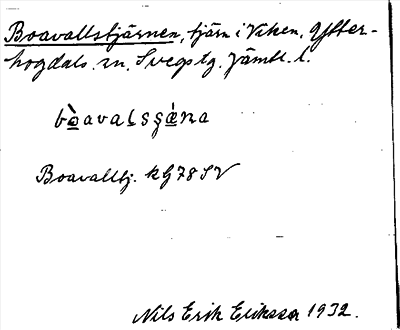 Boavallstjärnen, tjärn i Viken, Ytter-
hogdals sn, Svegs tg. Jämtl. l.
bòavalsʂǽna
Boavalltj. kG78SV
Nils Erik Eriksson 1932.